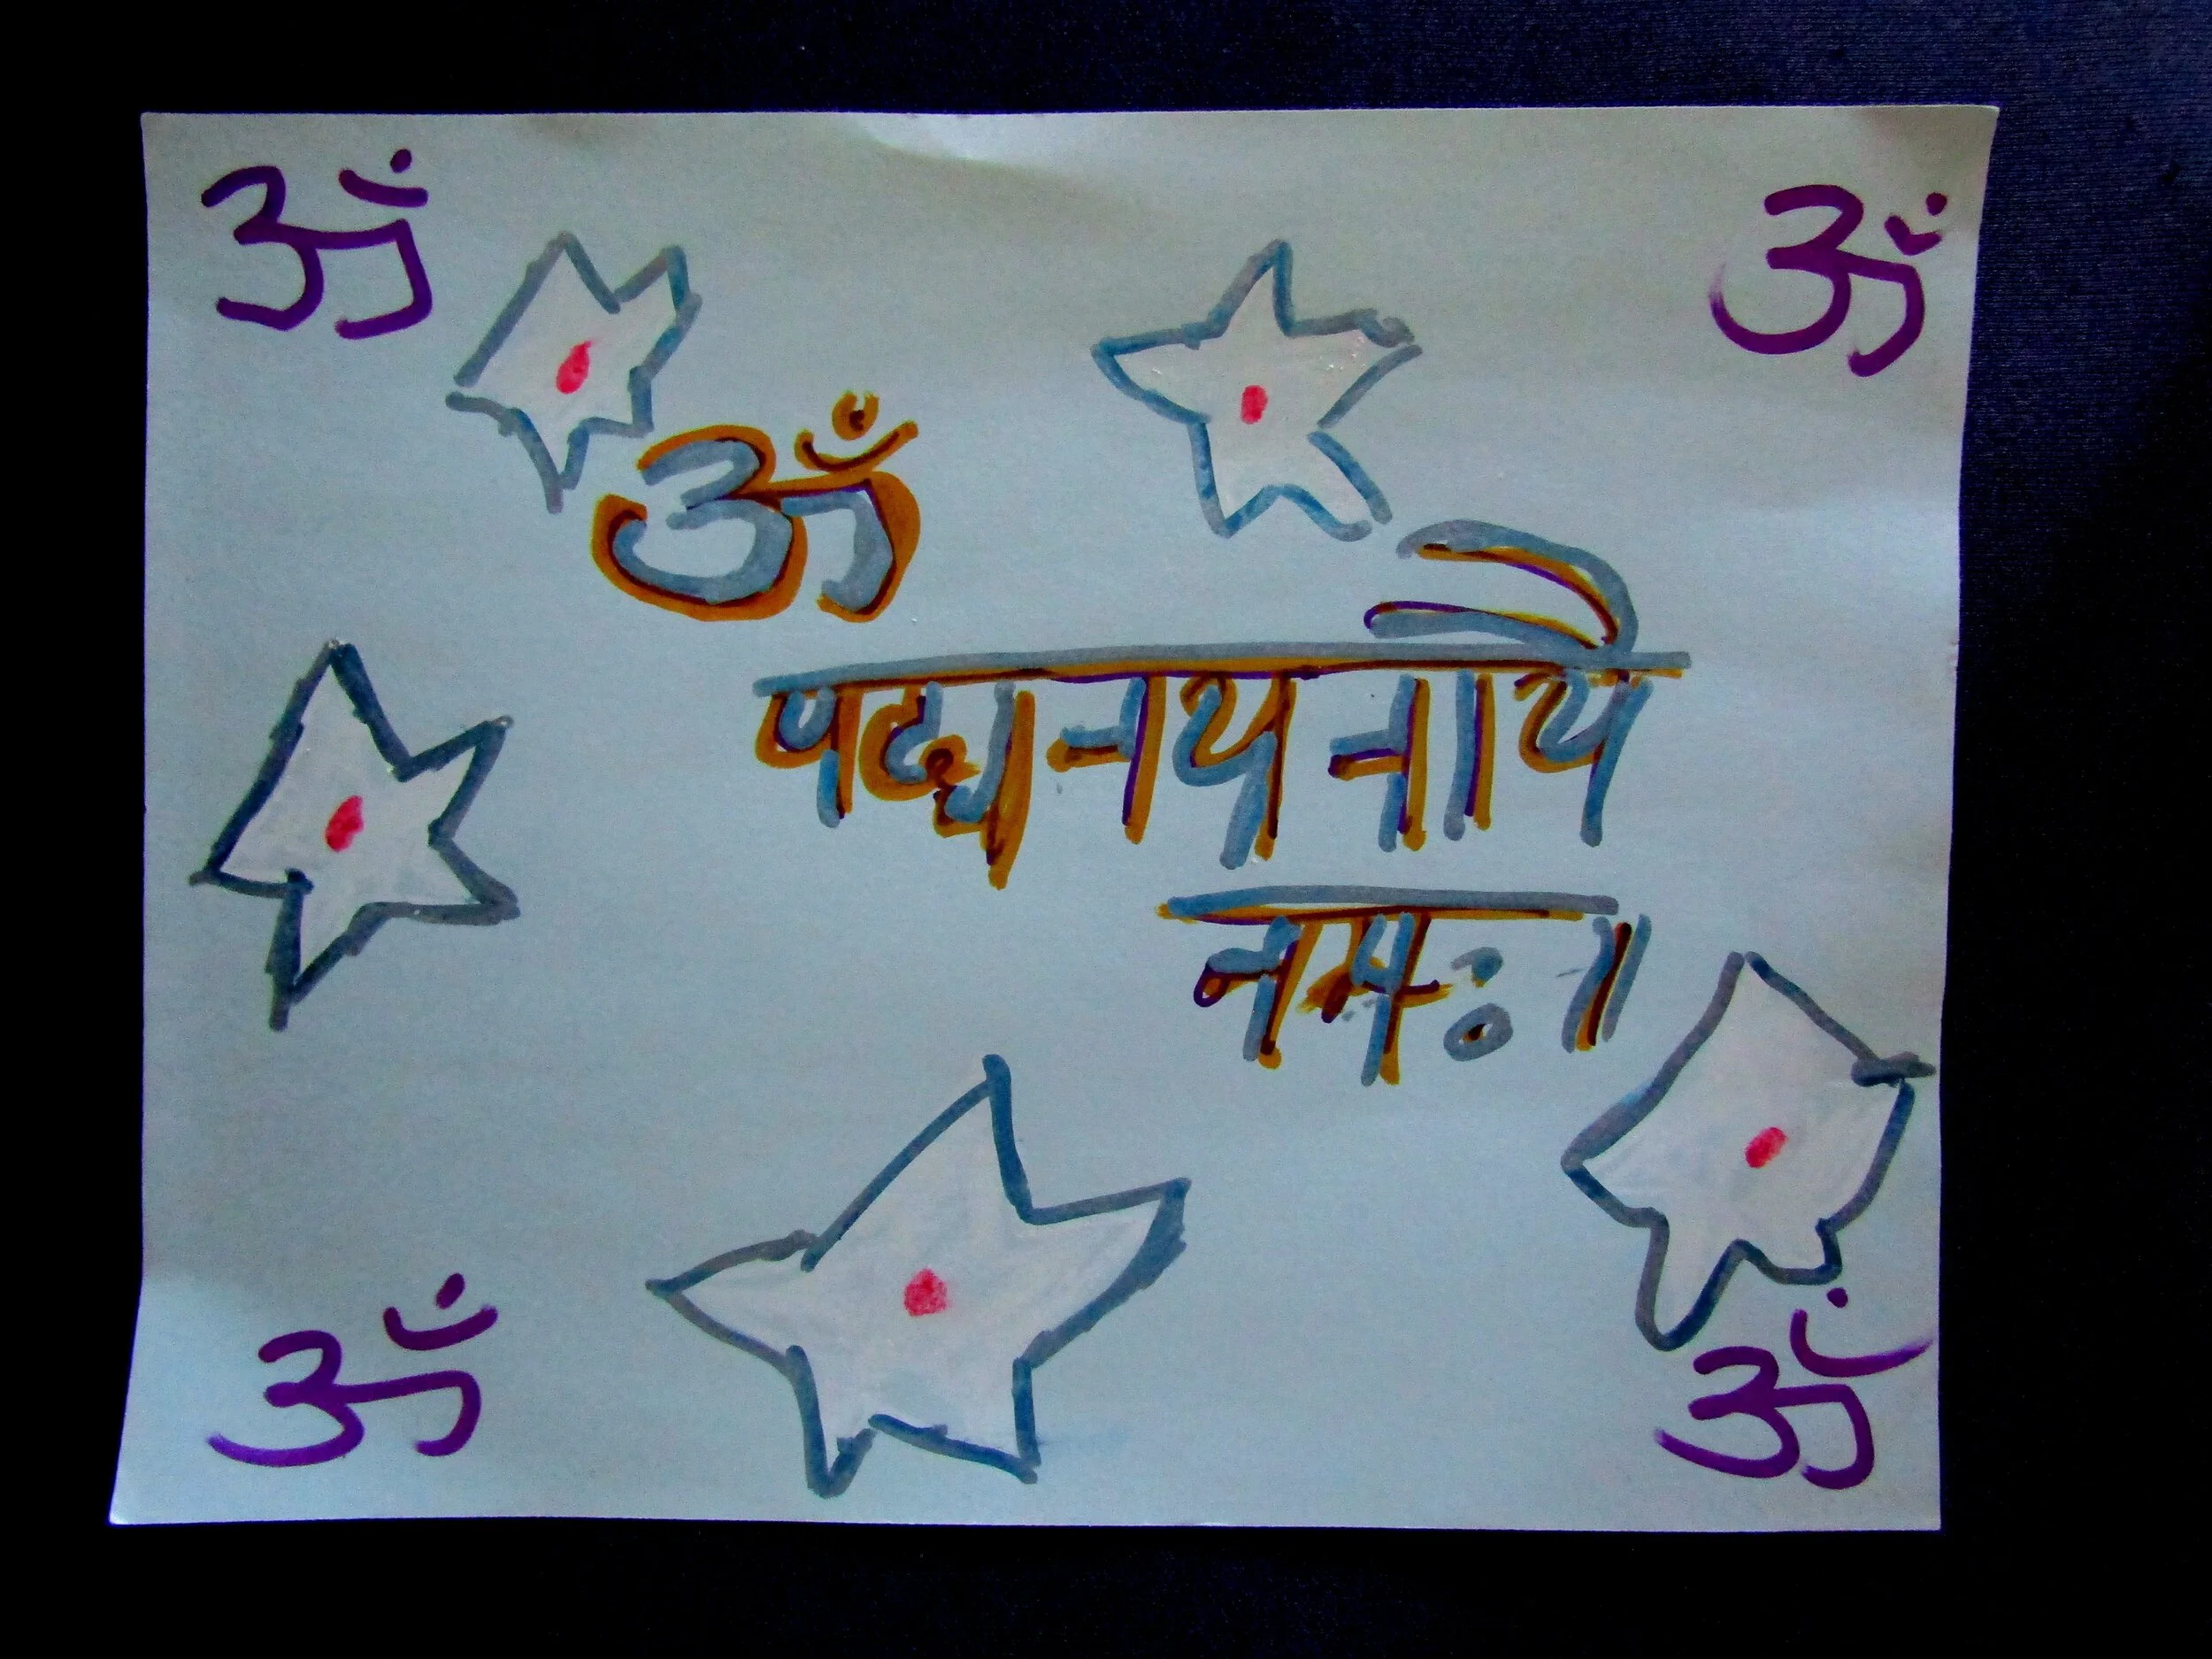 ॐ ॐ
ॐ
पद्मनयनायै
नमः॥
ॐ ॐ